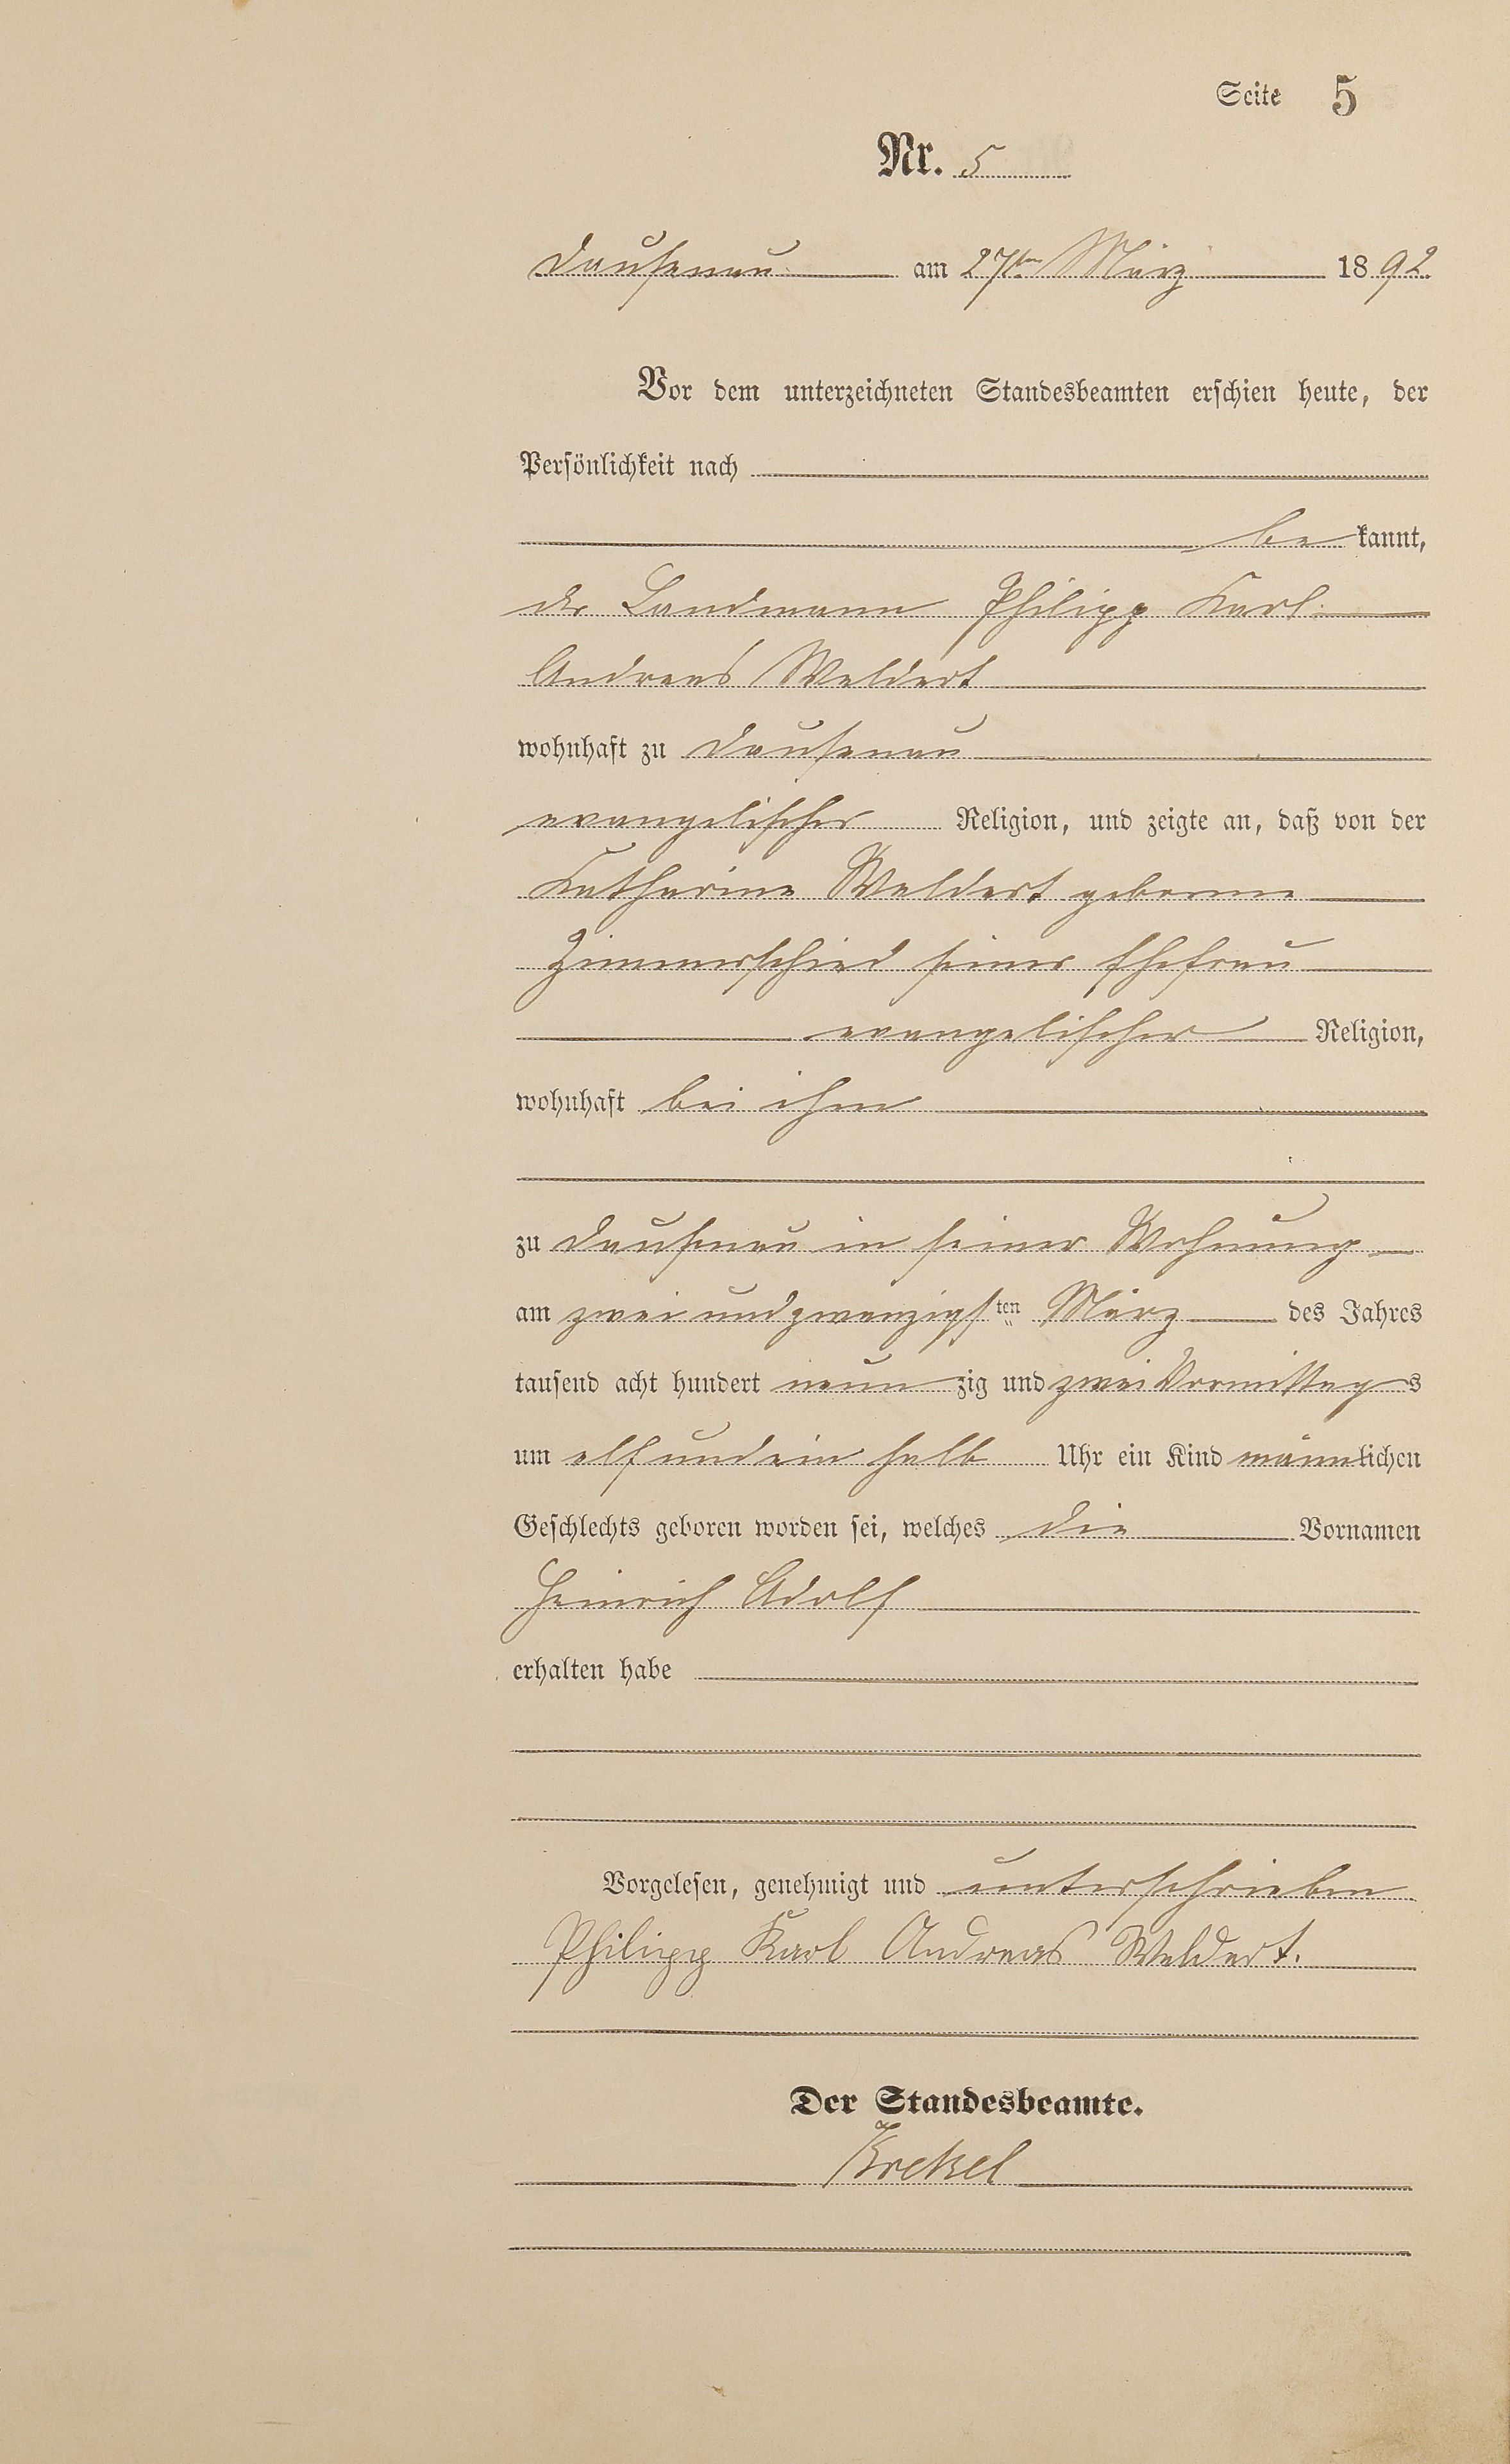 Seite 5
Nr. 5
Dausenau am 27ten März 1892.
Vor dem unterzeichneten Standesbeamten erschien heute, der
Persönlichkeit nach
be kannt,
der Landmann Philipp Karl
Andreas Weldert
wohnhaft zu Dausenau
evangelischer Religion, und zeigte an, daß von der
Katharine Weldert geborene
Zimmerschied seiner Ehefrau
evangelischer Religion,
wohnhaft bei ihm
zu Dausenau in seiner Wohnung
am zwei und zwanzigsten März des Jahres
tausend acht hundert neun zig und zwei Vormittags
um elf und ein halb Uhr ein Kind männlichen
Geschlechts geboren worden sei, welches die Vornamen
Heinrich Adolf
erhalten habe
Vorgelesen, genehmigt und unterschrieben
Philipp Karl Andreas Weldert.
Der Standesbeamte.
Krekel